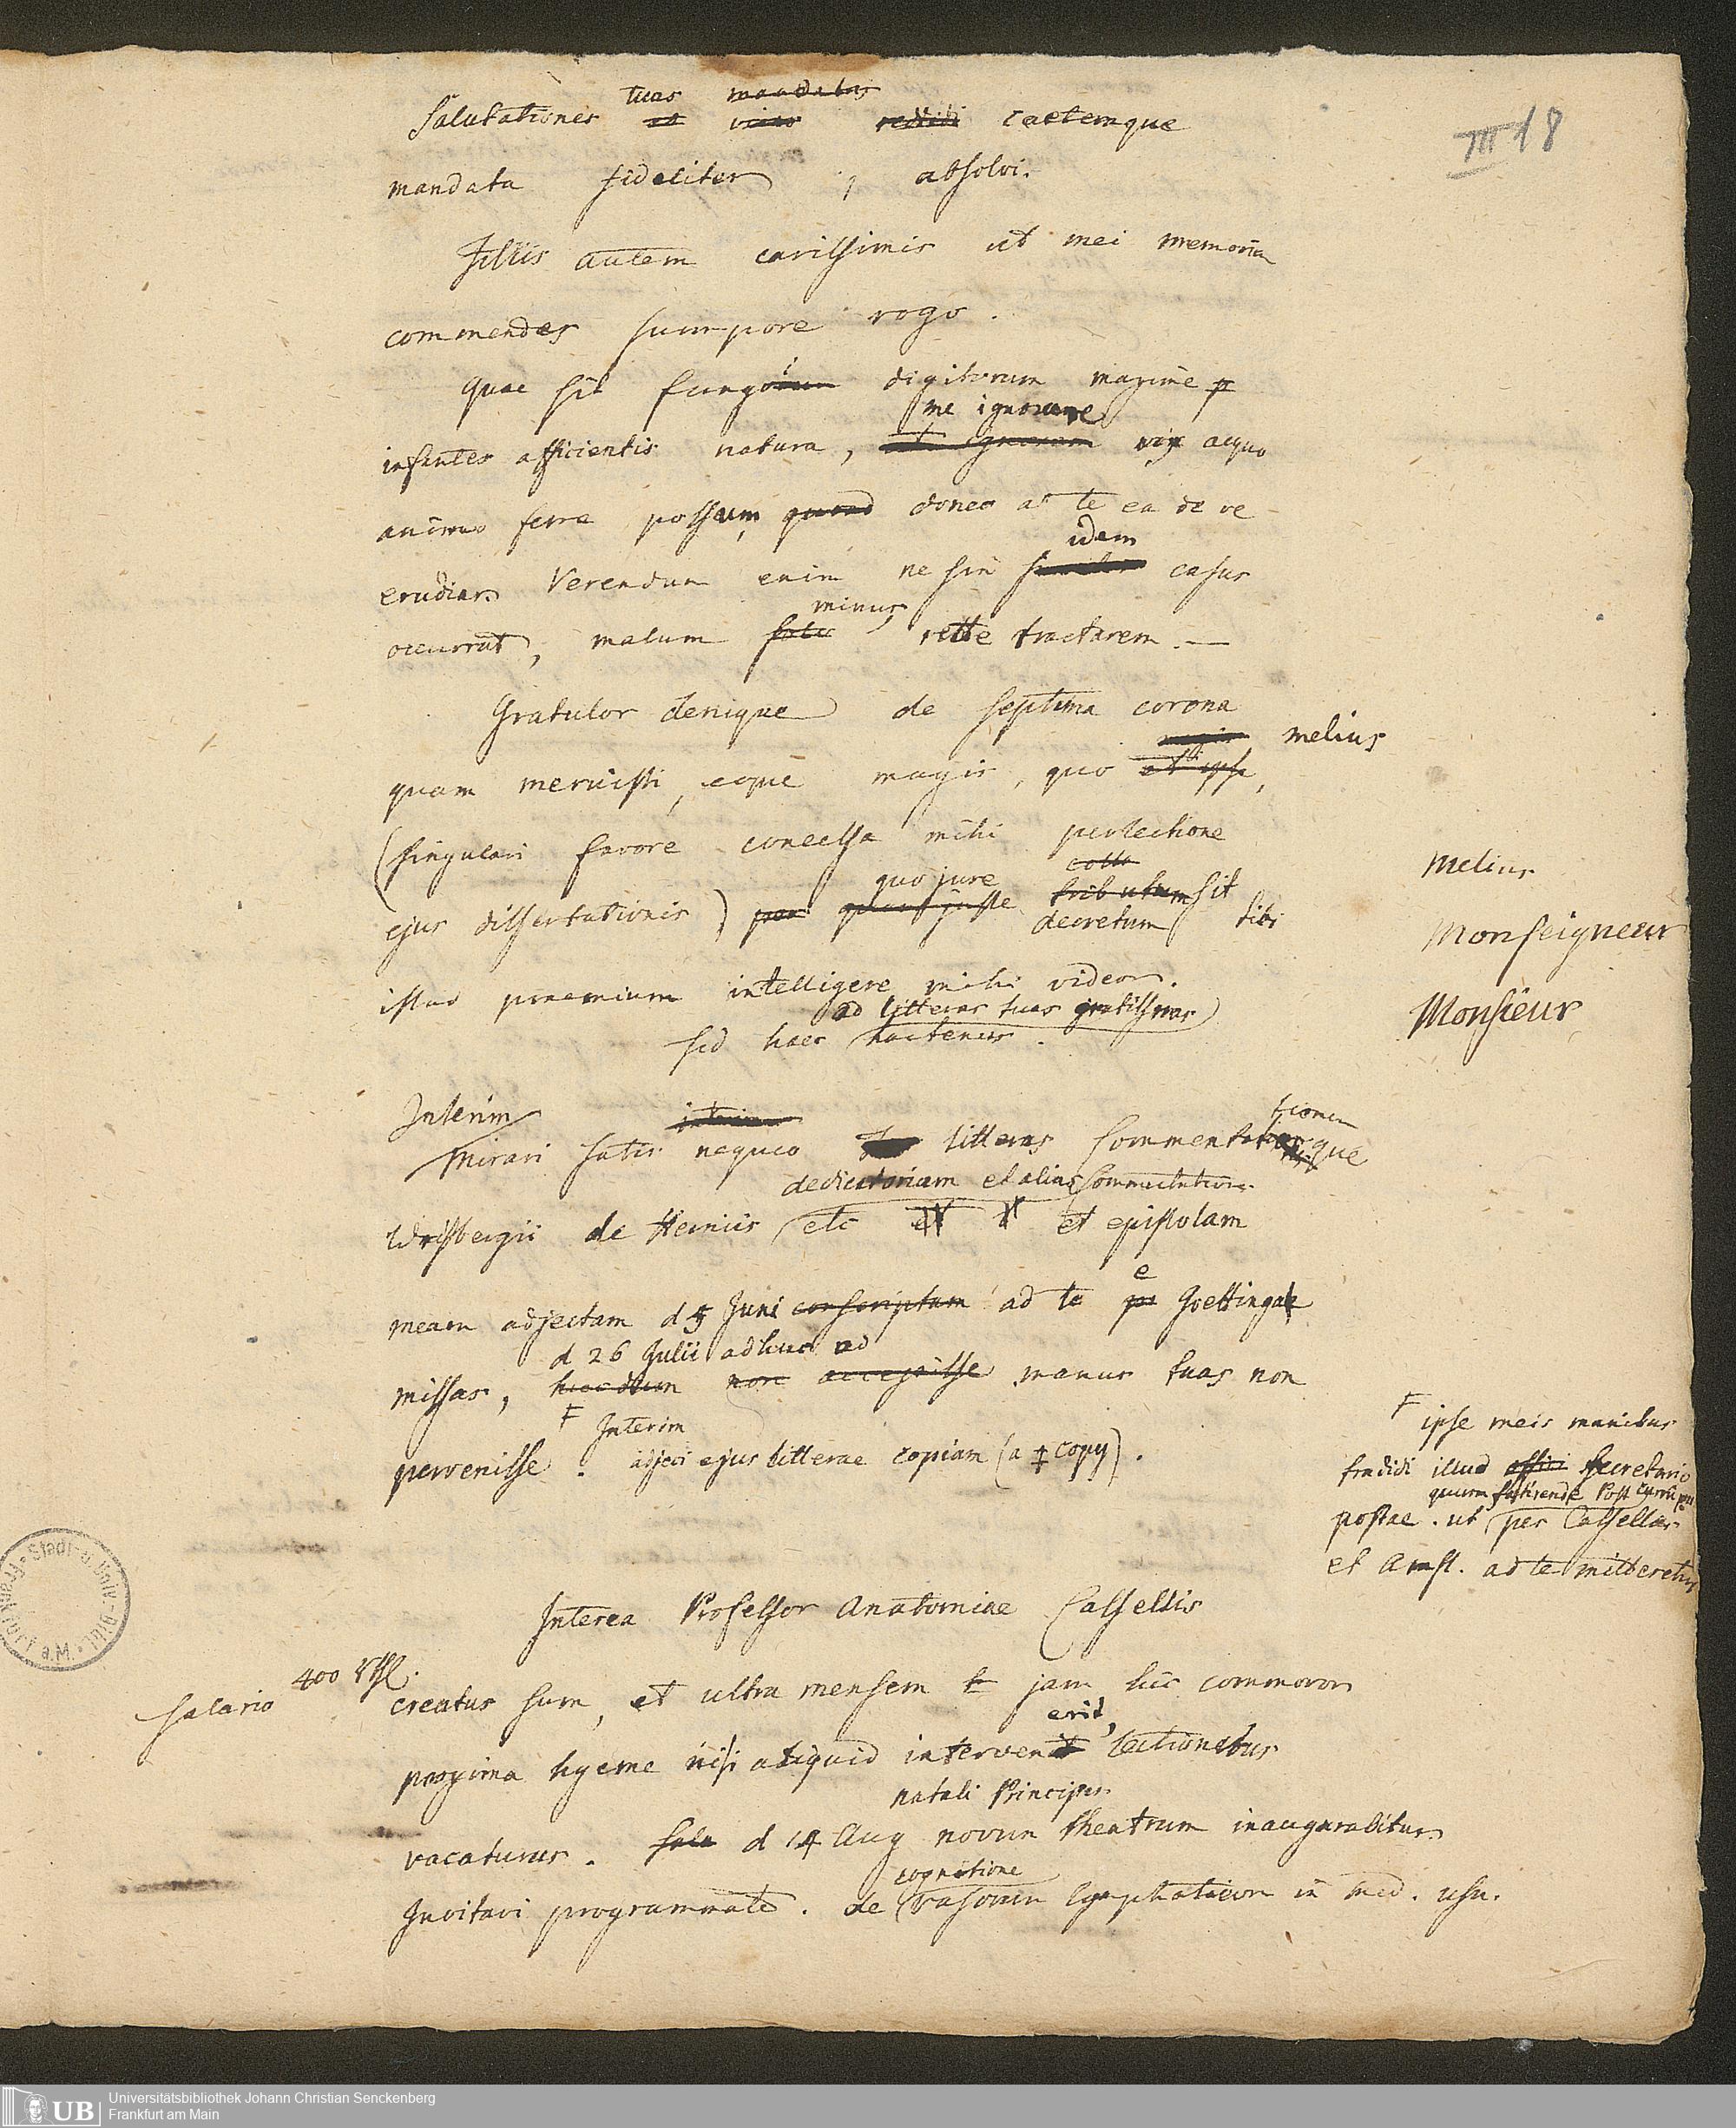 III 18
tuas mandatas
Salutationes et reddidi caetemque
mandata fideliter, absolvi.
Filiis autem carissimis ut mei memoriam
commendes summpore rogo.
Quae sit fungi digitorum maxime
me ignorare
infantes afficientis natura, ignorare vix aequo
animo ferre possum, donec a te ea de re
idem
erudiar. Verendum enim ne sin casus
minus
occurrat, malum recte tractarem. —
Gratulor denique de septima corona
melius
quam meruisti, eoque magis, quo et ipse,
(singulari favore concessa mihi perlectione
quo jure
ejus dissertationis) juste tributum sit
decretum tibi
istud praemium intelligere mihi videor.
ad litteras tuas gratissimas
Sed haec hactenus.
Melius
Monseigneur
Monsieur
Interim interim
tionem
Mirari satis nequeo litteras Commentationque
dedicatoriam et alias Commentation.
Wrisbergii de Herniis etc et epistolam
e
meam adjectam d 5 Juni conscriptam ad te Goettingae
d 26 Julii adhuc ad
missas, haecdum non accepisse manus tuas non
F Interim
pervenisse. adjeci ejus litterae copiam (a copy).
F ipse meis manibus
tradidi illud Secretario
postae. ut per Cassellas
et Amst. ad te mitteretur
Interea Professor Anatomiae Cassellis
salario 400 rthl.
creatus sum, et ultra mensem jam hic commoror
erit,
proxima hyeme nisi aliquid intervenit lectionibus
natali Principis
vacaturus. d 14 Aug novum theatrum inaugurabitur
cognitione
Invitavi programmate. de vasorum lymphaticorum in med. usu.
Stadt- u. Univ.-Bibl. Frankfurt a.M.
UB
Universitätsbibliothek Johann Christian Senckenberg
Frankfurt am Main